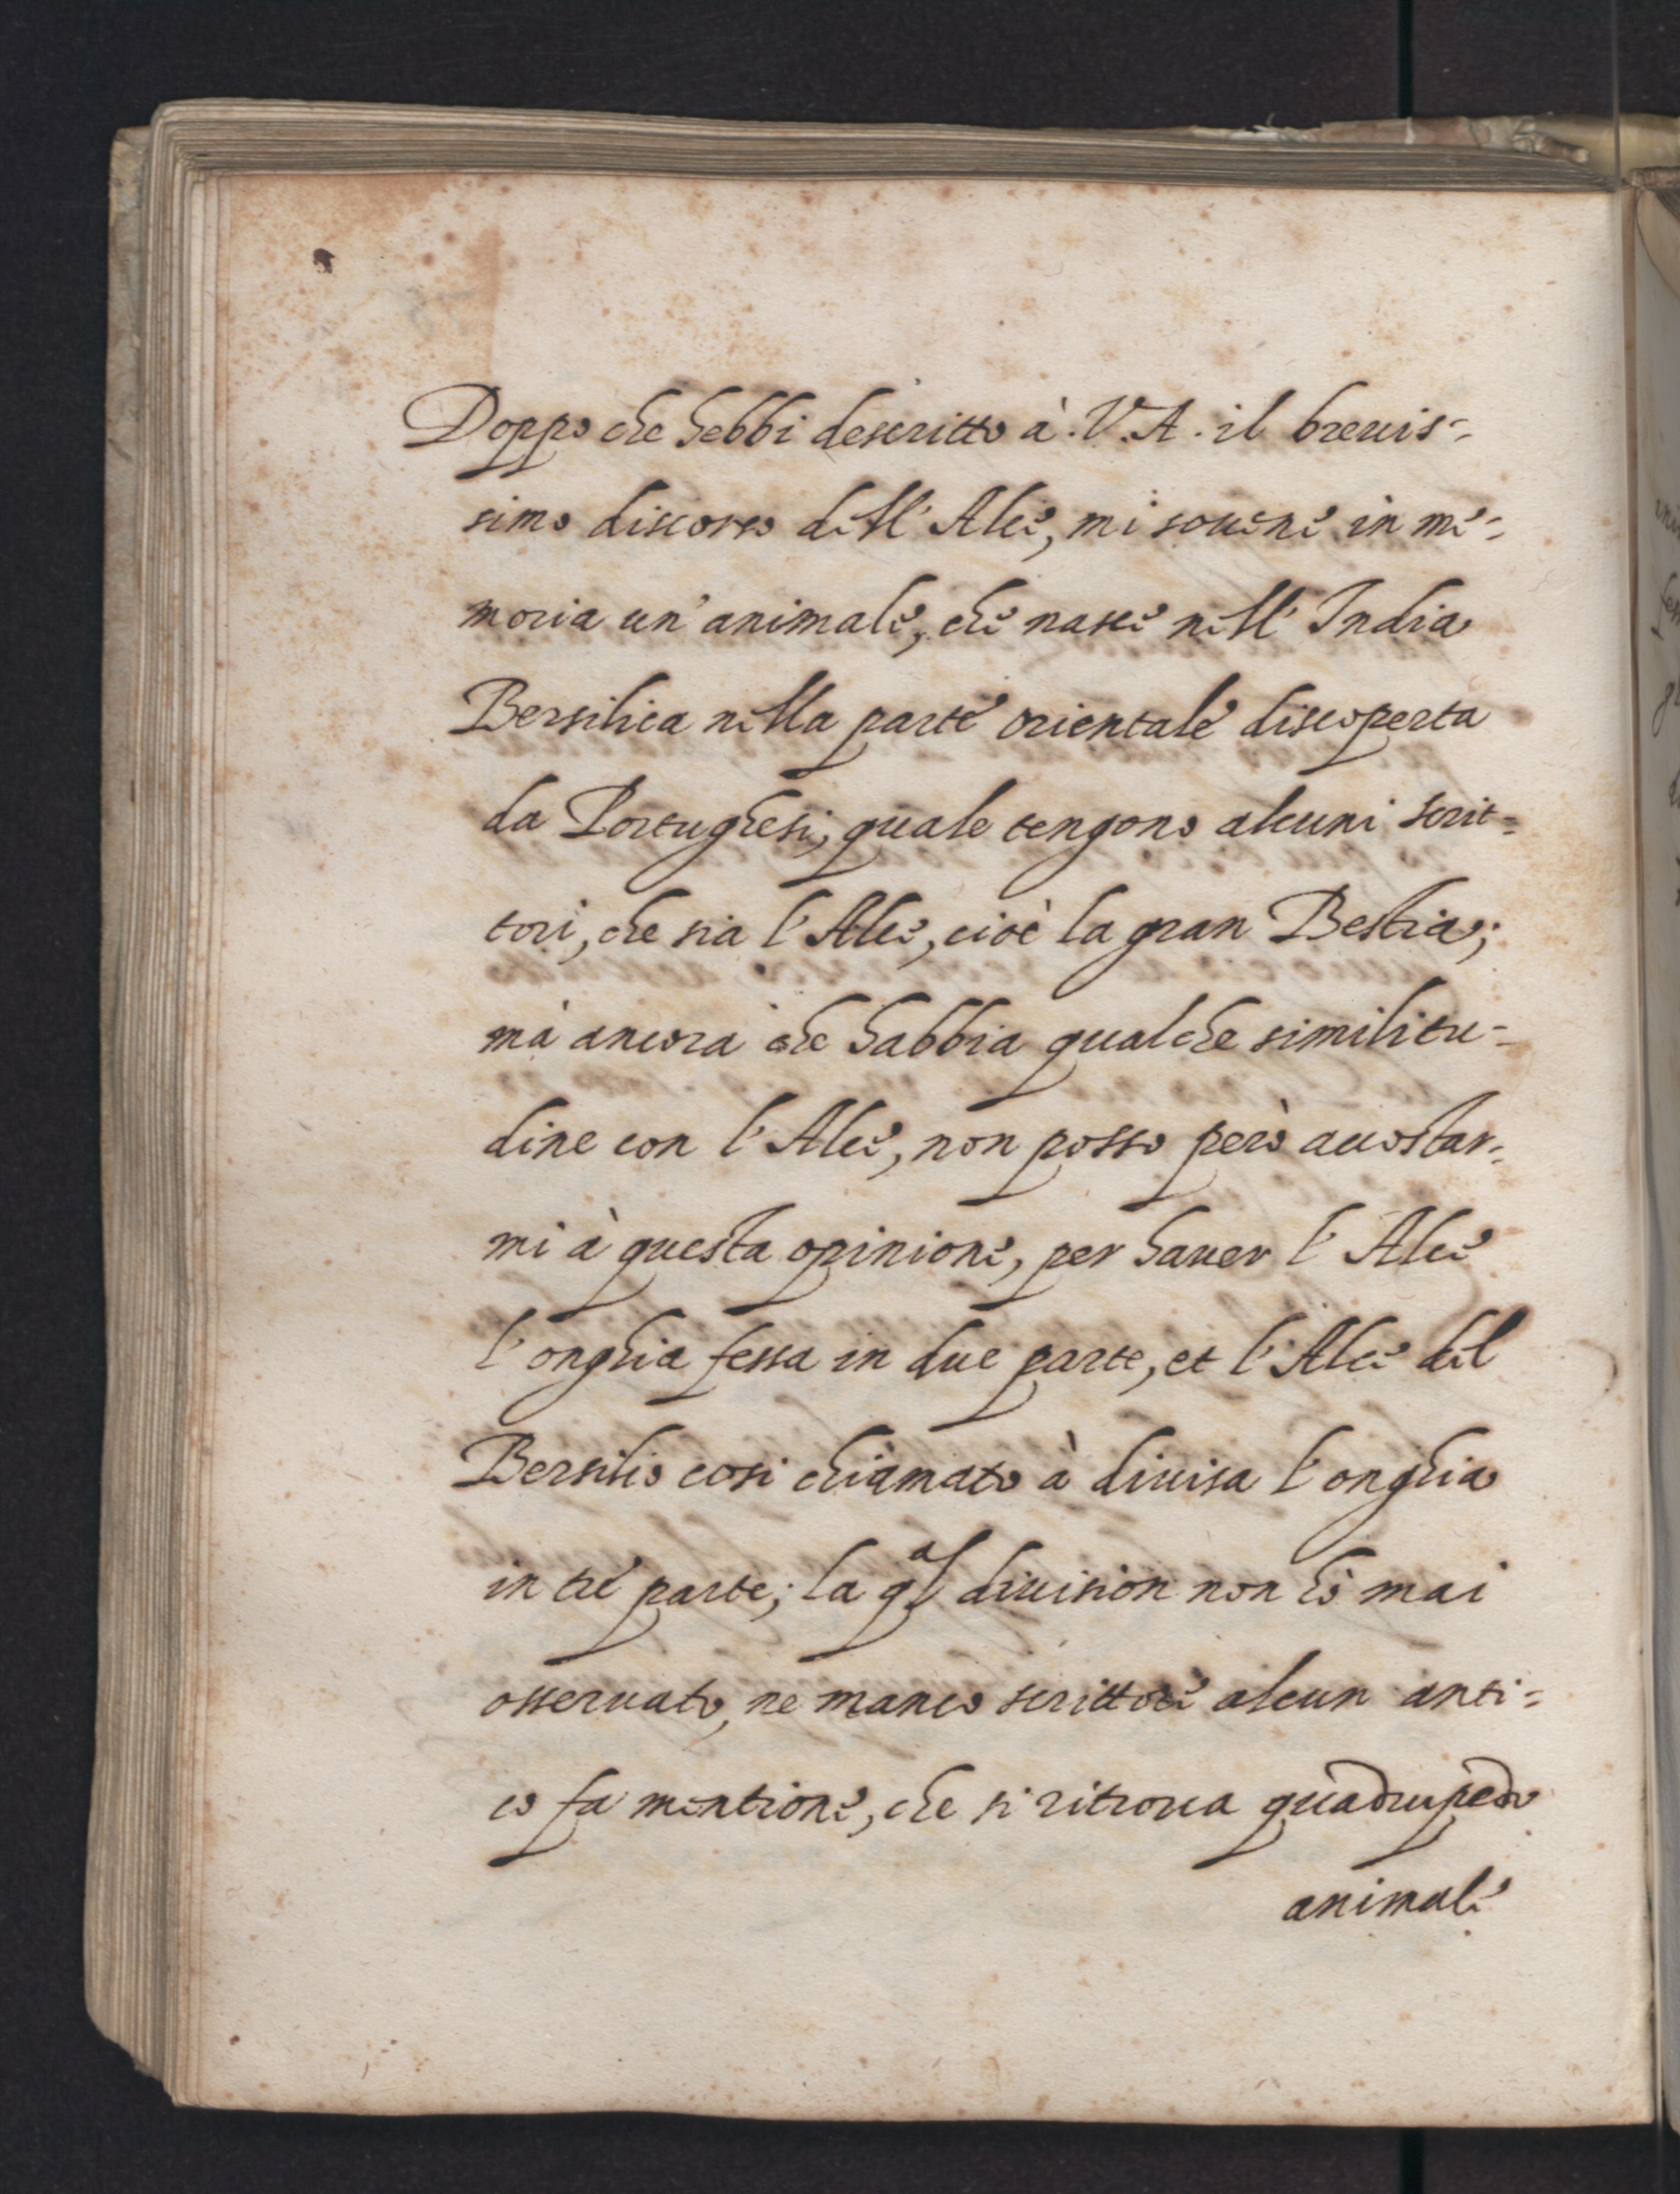 Doppo che hebbi descritto à V.A. il breuis=
simo discorso dell'Alce, mi souene in me=
moria un'animale, che nasce nell'India
Bersilica nella parte orientale discoperta
da Portughesi, quale tengono alcuni scrit=
tori, che sia l'Alce, cioè la gran Bestia;
mà ancora che habbia qualche similitu=
dine con l'Alce, non posso però accostar=
mi à questa opinione, per hauer l'Alce
l'onghia fessa in due parte, et l'Alce del
Bersilio cosi chiamato à diuisa l'onghia
in tre parte; la qal diuision non hò mai
osseruato, ne manco scrittore alcun anti=
co fa mentione, che si ritroua quadrupedo
animale